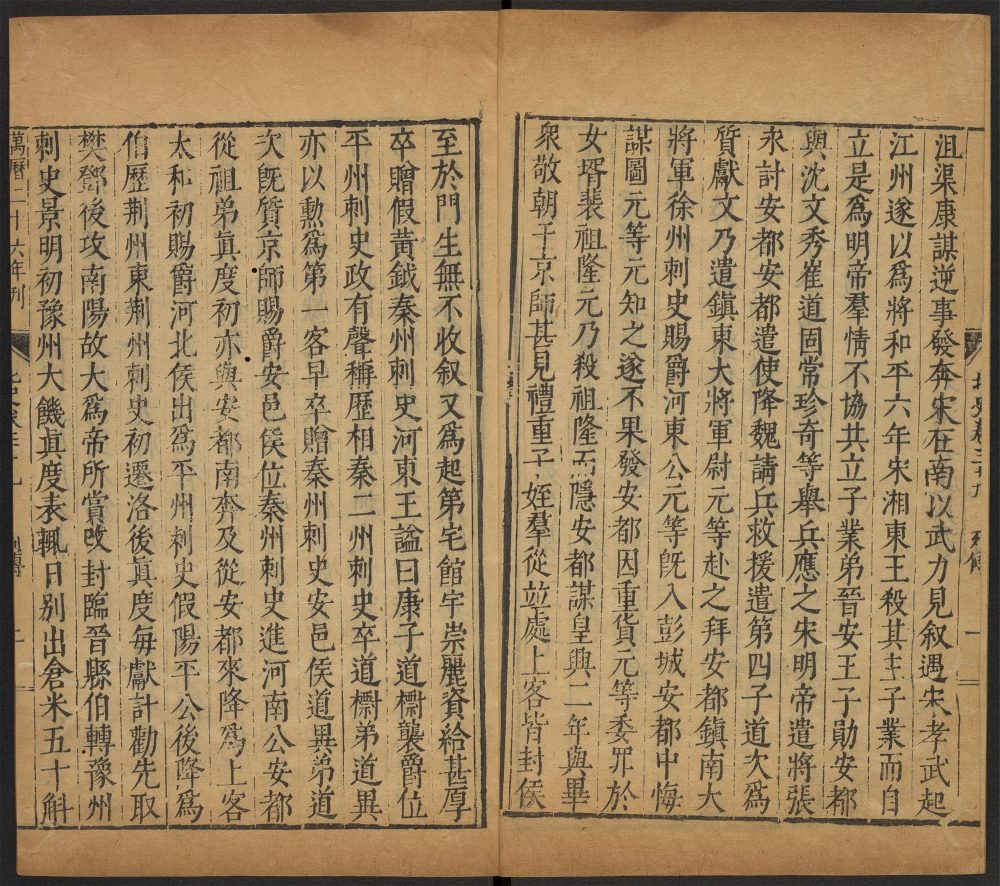 北史卷三十九 列傳 一
沮渠康謀逆事發奔宋在南以武力見叙遇宋孝武起
江州遂以爲將和平六年宋湘東王殺其主子業而自
立是爲明帝羣情不協共立子業弟晉安王子勛安都
與沈文秀崔道固常珍奇等舉兵應之宋明帝遣將張
永討安都安都遣使降魏請兵救援遣第四子道次爲
質獻文乃遣鎮東大將軍尉元等赴之拜安都鎮南大
將軍徐州刺史賜爵河東公元等既入彭城安都中悔
謀圖元等元知之遂不果發安都因重貨元等委罪於
女壻裴祖隆元乃殺祖隆而隱安都謀皇興二年與畢
衆敬朝于京師甚見禮重子姪羣從並處上客皆封侯
至於門生無不收叙又爲起第宅館宇崇麗資給甚厚
卒贈假黃鉞秦州刺史河東王謚曰康子道檦襲爵位
平州刺史政有聲稱歷相秦二州刺史卒道檦弟道異
亦以勳爲第一客早卒贈秦州刺史安邑侯道異弟道
次既質京師賜爵安邑侯位秦州刺史進河南公安都
從祖弟眞度初亦與安都南奔及從安都來降爲上客
太和初賜爵河北侯出爲平州刺史假陽平公後降爲
伯歷荆州東荆州刺史初遷洛後眞度每獻計勸先取
樊鄧後攻南陽故大爲帝所賞改封臨晉縣伯轉豫州
刺史景明初豫州大饑眞度表輒日别出倉米五十斛
萬曆二十六年刊